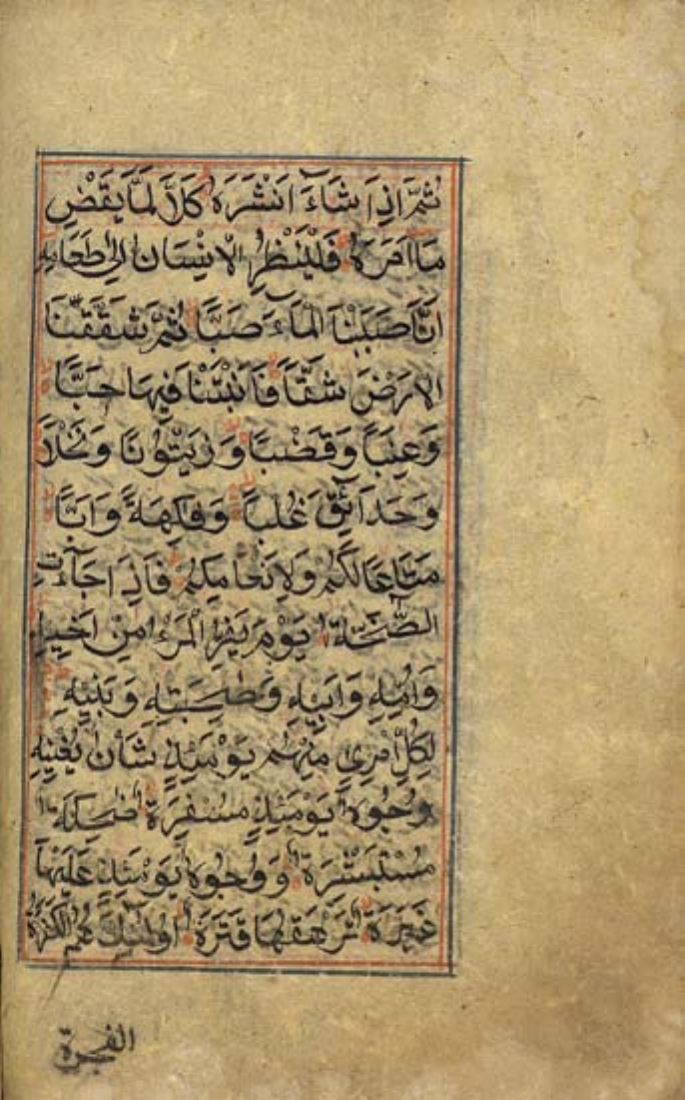 ثُمَّ اِذَا شَاءَ اَنْشَرَهُ كَلَّا لَمَّا يَقْضِ
مَا اَمَرَهُ فَلْيَنْظُرِ الْاِنْسَانُ اِلٰى طَعَامِهِ
اَنَّا صَبَبْنَا الْمَاءَ صَبًّا ثُمَّ شَقَقْنَا
الْاَرْضَ شَقًّا فَاَنْبَتْنَا فِيهَا حَبًّا
وَعِنَبًا وَقَضْبًا وَزَيْتُونًا وَنَخْلًا
وَحَدَائِقَ غُلْبًا وَفَاكِهَةً وَاَبًّا
مَتَاعًا لَكُمْ وَلِاَنْعَامِكُمْ فَاِذَا جَاءَتِ
الصَّاخَّةُ يَوْمَ يَفِرُّ الْمَرْءُ مِنْ اَخِيهِ
وَاُمِّهِ وَاَبِيهِ وَصَاحِبَتِهِ وَبَنِيهِ
لِكُلِّ امْرِئٍ مِنْهُمْ يَوْمَئِذٍ شَأْنٌ يُغْنِيهِ
وُجُوهٌ يَوْمَئِذٍ مُسْفِرَةٌ ضَاحِكَةٌ
مُسْتَبْشِرَةٌ وَوُجُوهٌ يَوْمَئِذٍ عَلَيْهَا
غَبَرَةٌ تَرْهَقُهَا قَتَرَةٌ اُولٰئِكَ هُمُ الْكَفَرَةُ
الفجرة